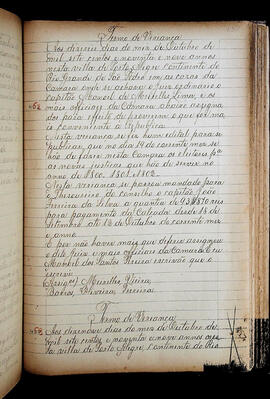 Termo de Veriança
Aos dezaseis dias do mez de Outubro de
mil sete centos e noventa e nove annos
nesta villa de Porto Alegre Continente do
Rio Grande de São Pedro em as cazas da
Camara onde se achava o Juiz ordinario o
capitão Manoel de Meirelles e os
mais officiaes da Camara abaixo assigna
dos para effeito de proverem o que for ma
is conveniente a Republica
Nesta veriança se fez um edital para se
publicar, que no dia 19 do corrente mez se
hão de fazer nesta Camara os eleitores pª
as novas justiças que hão de servir no
anno de 1800. 1801. 1802.
Nesta veriança se passou mandado para
o thezoureiro do conselho o capitão João
Ferreira da Silva a quantia de 93$870 reis
para pagamento da Calçada desde 14 de
Setembro até 12 de Outubro do corrente mez
e anno.
E por não haver mais que deferir assignou
o dito juiz e mais officiaes da Camara. Eu
Manoel dos Santos escrivão que o
escrevi
Meirelles Vieira,
Oliveira
Termo de Veriança
Aos dezenove dias do mez de Outubro de
mil sete centos e noventa e nove annos nes
ta villa de Porto Alegre, Continente do Rio